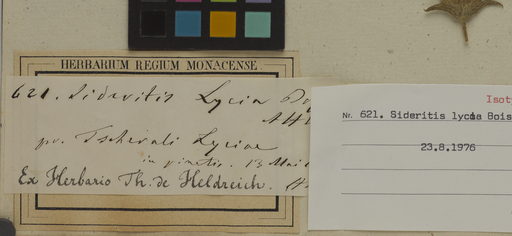 HERBARIUM REGIUM MONACENSE.
621. Sideritis Lycia
pr. Lyciae
in pinetis. 13 Mai
Ex Herbario Th. de Heldreich.
Isoty
Nr. 621. Sideritis lycia Bois
23.8.1976